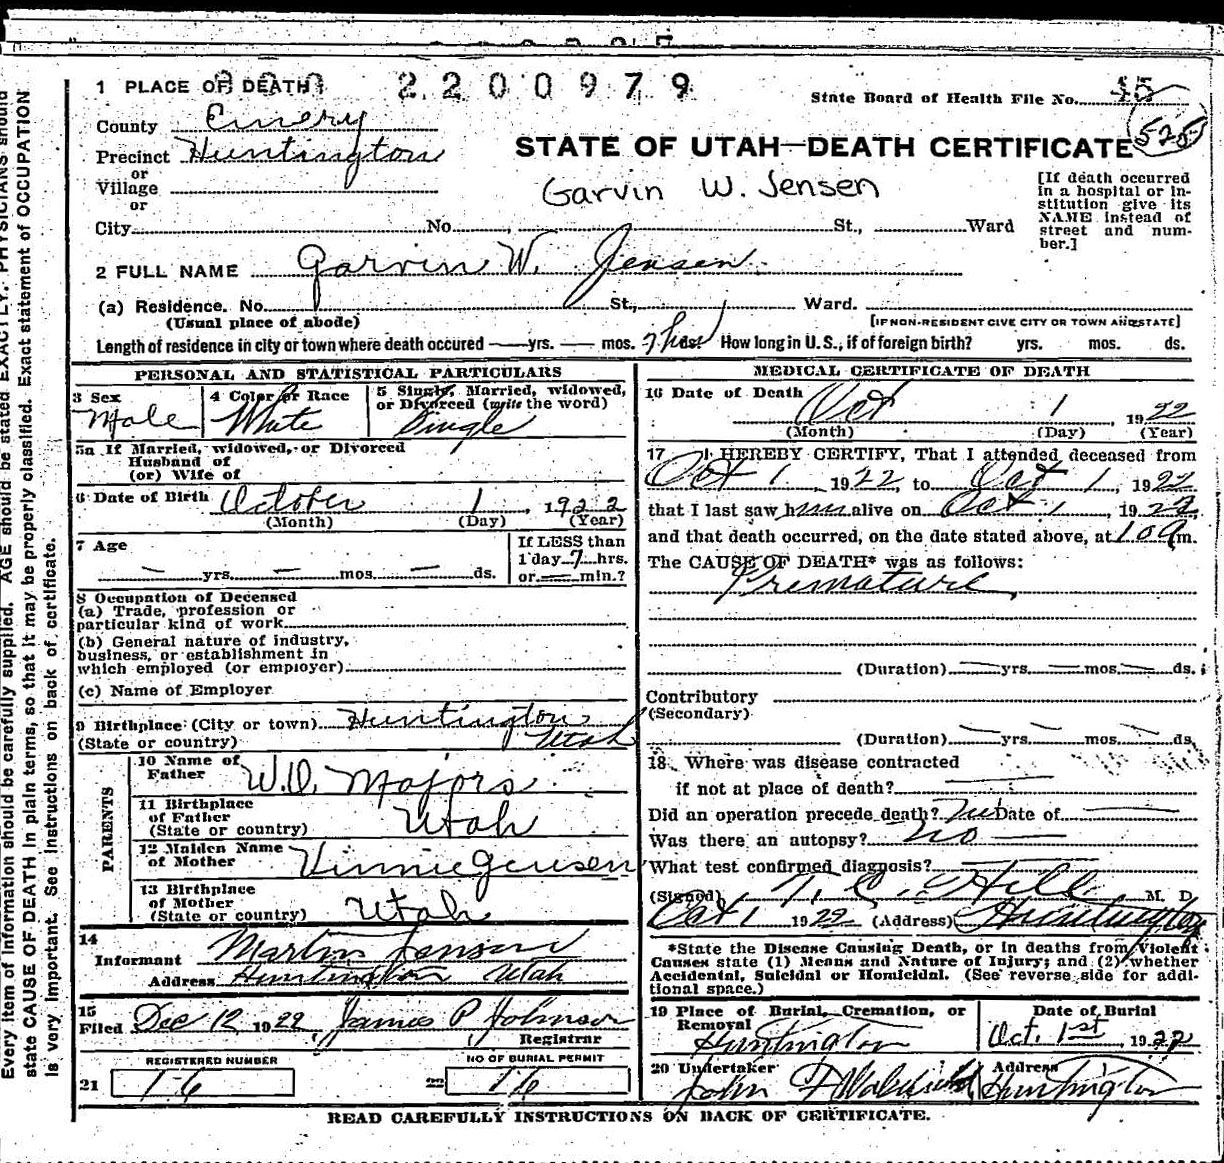 1 PLACE OF DEATH 2200979
State Board of Health File No. 45
525
County Emery
Precinct Huntington
or
Village
or
STATE OF UTAH—DEATH CERTIFICATE
Garvin W. Jensen
[If death occurred in a hospital or institution give its NAME instead of street and number.]
City No. St., Ward
2 FULL NAME Garvin W. Jensen
(a) Residence. No. St., Ward.
(Usual place of abode) [IF NON-RESIDENT GIVE CITY OR TOWN AND STATE]
Length of residence in city or town where death occured — yrs. — mos. 7 hrs ds. How long in U.S., if of foreign birth? yrs. mos. ds.
PERSONAL AND STATISTICAL PARTICULARS
3 Sex Male
4 Color or Race White
5 Single, Married, widowed, or Divorced (write the word) Single
5a If Married, widowed, or Divorced
Husband of
(or) Wife of
6 Date of Birth October 1, 1922
(Month) (Day) (Year)
7 Age
— yrs. — mos. — ds.
If LESS than
1 day 7 hrs.
or — min.?
8 Occupation of Deceased
(a) Trade, profession or
particular kind of work
(b) General nature of industry,
business, or establishment in
which employed (or employer)
(c) Name of Employer
9 Birthplace (City or town) Huntington
(State or country) Utah
PARENTS
10 Name of Father W.O. Majors
11 Birthplace of Father
(State or country) Utah
12 Maiden Name of Mother Vinnie Jensen
13 Birthplace of Mother
(State or country) Utah
14
Informant Martin Jensen
Address Huntington Utah
15
Filed Dec 12 1922, James P Johnson
Registrar
REGISTERED NUMBER NO OF BURIAL PERMIT
21 16 22 16
MEDICAL CERTIFICATE OF DEATH
16 Date of Death Oct 1 1922
(Month) (Day) (Year)
17 I HEREBY CERTIFY, That I attended deceased from
Oct 1, 1922, to Oct 1, 1922
that I last saw him alive on Oct 1, 1922,
and that death occurred, on the date stated above, at 10 a m.
The CAUSE OF DEATH* was as follows:
Premature
(Duration) — yrs. — mos. — ds.
Contributory
(Secondary)
(Duration) — yrs. — mos. — ds.
18 Where was disease contracted
if not at place of death?
Did an operation precede death? No Date of
Was there an autopsy? No
What test confirmed diagnosis?
(Signed) T. C. Hill M. D.
Oct 1 1922 (Address) Huntington
*State the Disease Causing Death, or in deaths from Violent
Causes state (1) Means and Nature of Injury; and (2) whether
Accidental, Suicidal or Homicidal. (See reverse side for addi-
tional space.)
19 Place of Burial, Cremation, or Removal Huntington
Date of Burial Oct. 1st, 1922
20 Undertaker John F Wakefield
Address Huntington
READ CAREFULLY INSTRUCTIONS ON BACK OF CERTIFICATE.
Every item of information should be carefully supplied. AGE should be stated EXACTLY. PHYSICIANS should
state CAUSE OF DEATH in plain terms, so that it may be properly classified. Exact statement of OCCUPATION
is very important. See instructions on back of certificate.